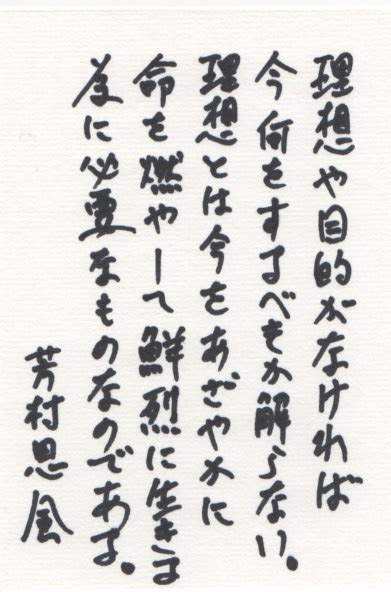 理想や目的がなければ
今何をするべきか解らない。
理想とは今をあざやかに
命を燃やして鮮烈に生きる
為に必要なものなのである。
芳村思風